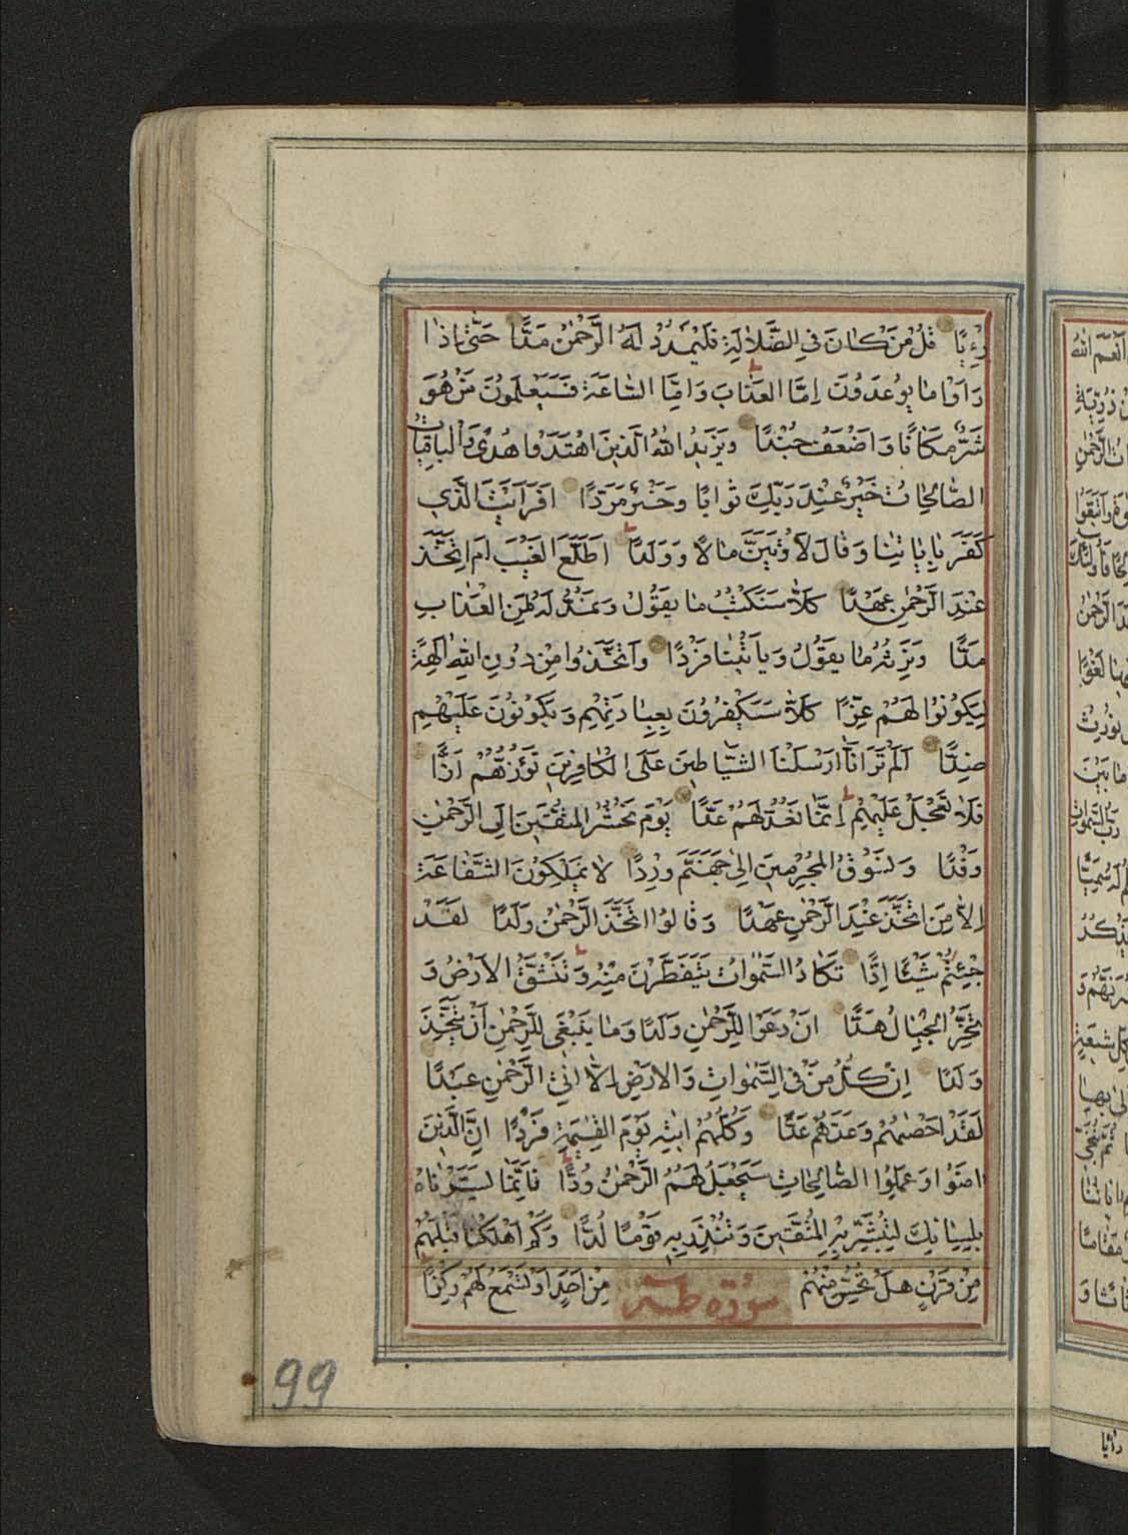 رِءْيًا قُلْ مَنْ كَانَ فِي الضَّلَالَةِ فَلْيَمْدُدْ لَهُ الرَّحْمٰنُ مَدًّا حَتّٰى اِذَا
رَاَوْا مَا يُوعَدُونَ اِمَّا الْعَذَابَ وَاِمَّا السَّاعَةَ فَسَيَعْلَمُونَ مَنْ هُوَ
شَرٌّ مَكَانًا وَاَضْعَفُ جُنْدًا وَيَزِيدُ اللّٰهُ الَّذِينَ اهْتَدَوْا هُدًى وَالْبَاقِيَاتُ
الصَّالِحَاتُ خَيْرٌ عِنْدَ رَبِّكَ ثَوَابًا وَخَيْرٌ مَرَدًّا اَفَرَاَيْتَ الَّذِي
كَفَرَ بِاٰيَاتِنَا وَقَالَ لَاُوتَيَنَّ مَالًا وَوَلَدًا اَطَّلَعَ الْغَيْبَ اَمِ اتَّخَذَ
عِنْدَ الرَّحْمٰنِ عَهْدًا كَلَّا سَنَكْتُبُ مَا يَقُولُ وَنَمُدُّ لَهُ مِنَ الْعَذَابِ
مَدًّا وَنَرِثُهُ مَا يَقُولُ وَيَأْتِينَا فَرْدًا وَاتَّخَذُوا مِنْ دُونِ اللّٰهِ اٰلِهَةً
لِيَكُونُوا لَهُمْ عِزًّا كَلَّا سَيَكْفُرُونَ بِعِبَادَتِهِمْ وَيَكُونُونَ عَلَيْهِمْ
ضِدًّا اَلَمْ تَرَ اَنَّا اَرْسَلْنَا الشَّيَاطِينَ عَلَى الْكَافِرِينَ تَؤُزُّهُمْ اَزًّا
فَلَا تَعْجَلْ عَلَيْهِمْ اِنَّمَا نَعُدُّ لَهُمْ عَدًّا يَوْمَ نَحْشُرُ الْمُتَّقِينَ اِلَى الرَّحْمٰنِ
وَفْدًا وَنَسُوقُ الْمُجْرِمِينَ اِلٰى جَهَنَّمَ وِرْدًا لَا يَمْلِكُونَ الشَّفَاعَةَ
اِلَّا مَنِ اتَّخَذَ عِنْدَ الرَّحْمٰنِ عَهْدًا وَقَالُوا اتَّخَذَ الرَّحْمٰنُ وَلَدًا لَقَدْ
جِئْتُمْ شَيْئًا اِدًّا تَكَادُ السَّمٰوَاتُ يَتَفَطَّرْنَ مِنْهُ وَتَنْشَقُّ الْاَرْضُ وَ
تَخِرُّ الْجِبَالُ هَدًّا اَنْ دَعَوْا لِلرَّحْمٰنِ وَلَدًا وَمَا يَنْبَغِي لِلرَّحْمٰنِ اَنْ يَتَّخِذَ
وَلَدًا اِنْ كُلُّ مَنْ فِي السَّمٰوَاتِ وَالْاَرْضِ اِلَّا اٰتِي الرَّحْمٰنِ عَبْدًا
لَقَدْ اَحْصٰيهُمْ وَعَدَّهُمْ عَدًّا وَكُلُّهُمْ اٰتِيهِ يَوْمَ الْقِيٰمَةِ فَرْدًا اِنَّ الَّذِينَ
اٰمَنُوا وَعَمِلُوا الصَّالِحَاتِ سَيَجْعَلُ لَهُمُ الرَّحْمٰنُ وُدًّا فَاِنَّمَا يَسَّرْنَاهُ
بِلِسَانِكَ لِتُبَشِّرَ بِهِ الْمُتَّقِينَ وَتُنْذِرَ بِهِ قَوْمًا لُدًّا وَكَمْ اَهْلَكْنَا قَبْلَهُمْ
مِنْ قَرْنٍ هَلْ تُحِسُّ مِنْهُمْ سورة طه مِنْ اَحَدٍ اَوْ تَسْمَعُ لَهُمْ رِكْزًا
99